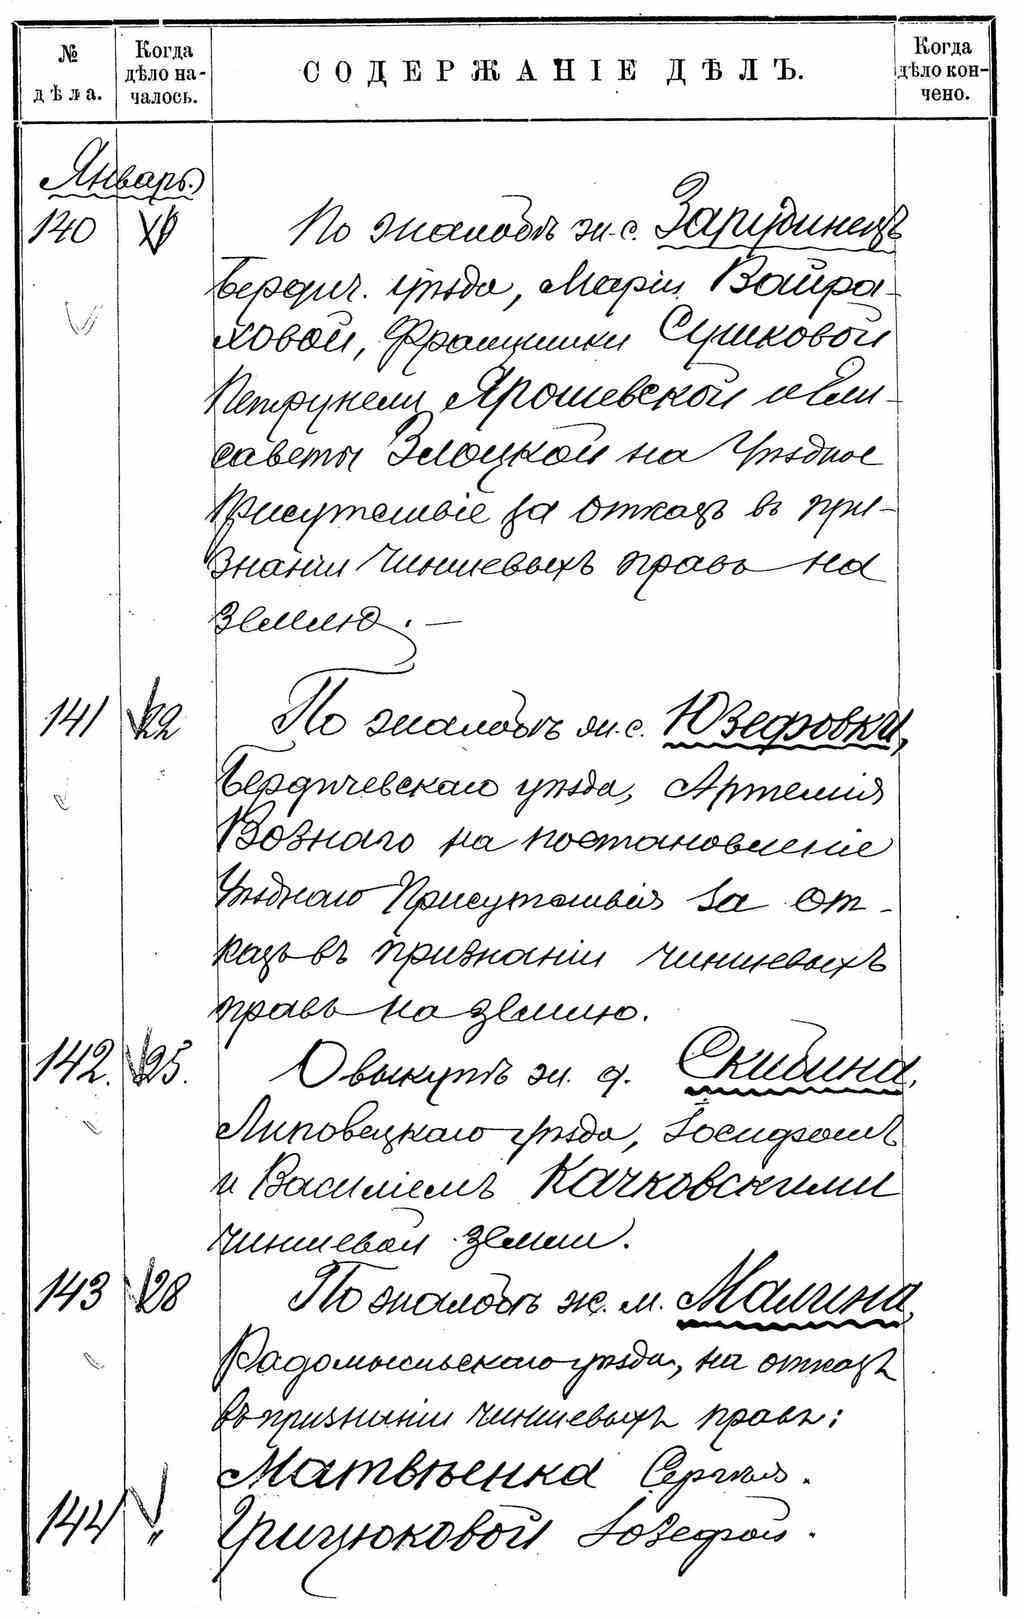 № дѣла.
Когда дѣло началось.
СОДЕРЖАНІЕ ДѢЛЪ.
Когда дѣло кончено.
Январь
140 По жалобѣ ж. с. Зарудинецъ
Бердич. уѣзда, Маріи Вайра-
ховой, Францишки Сушковой
Петрунели Ярошевской и Ели-
саветы Злоцкой на Уѣздное
Присутствіе за отказъ въ при-
знаніи чиншевыхъ правъ на
землю. —
141 22 По жалобѣ ж. с. Юзефовки,
Бердичевскаго уѣзда, Артемія
Вознаго на постановленіе
Уѣзднаго Присутствія за от-
казъ въ признаніи чиншевыхъ
правъ на землю.
142. 25. О выкупѣ ж. д. Скибина,
Липовецкаго уѣзда, Іосифомъ
и Василіемъ Качковскими
чиншевой земли.
143 28 По жалобѣ ж. м. Малина,
Радомысльскаго уѣзда, на отказъ
въ признаніи чиншевыхъ правъ:
Матвѣенка Сергѣя.
144 " Грицюковой Іозефой.